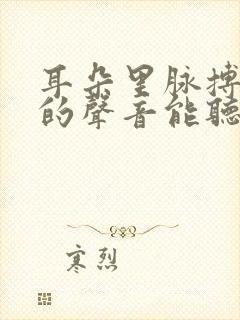 耳朵里脉搏
的聲音能聽
寒烈